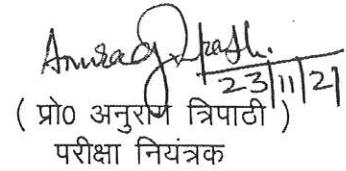 Anurag Tripathi.
23/11/21
( प्रो0 अनुराग त्रिपाठी )
परीक्षा नियंत्रक